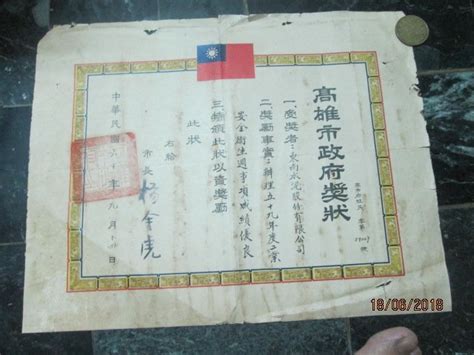 高雄市政府獎狀
一、受獎者：東南水泥股份有限公司
二、獎勵事實：辦理五十九年度工業
安全衛生週事項成績優良
三、特頒此狀以資獎勵
此狀
右給
市長 楊金虎
中華民國六十年九月 日
18/06/2018